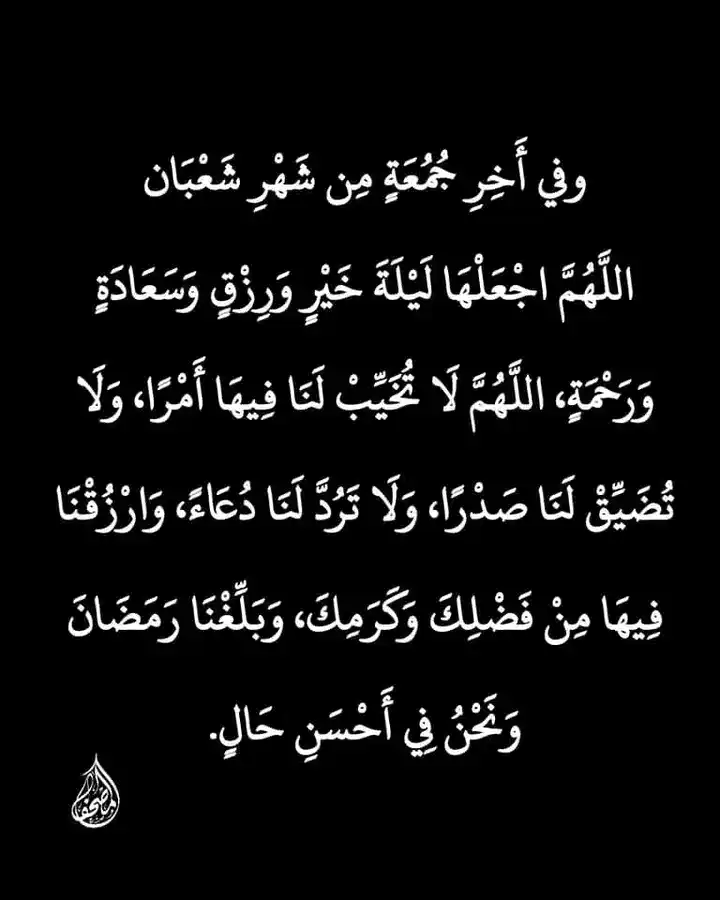 وفي أَخِرِ جُمُعَةٍ مِن شَهْرِ شَعْبَان
اللَّهُمَّ اجْعَلْهَا لَيْلَةَ خَيْرٍ وَرِزْقٍ وَسَعَادَةٍ
وَرَحْمَةٍ، اللَّهُمَّ لَا تُخَيِّبْ لَنَا فِيهَا أَمْرًا، وَلَا
تُضَيِّقْ لَنَا صَدْرًا، وَلَا تَرُدَّ لَنَا دُعَاءً، وَارْزُقْنَا
فِيهَا مِنْ فَضْلِكَ وَكَرَمِكَ، وَبَلِّغْنَا رَمَضَانَ
وَنَحْنُ فِي أَحْسَنِ حَالٍ.